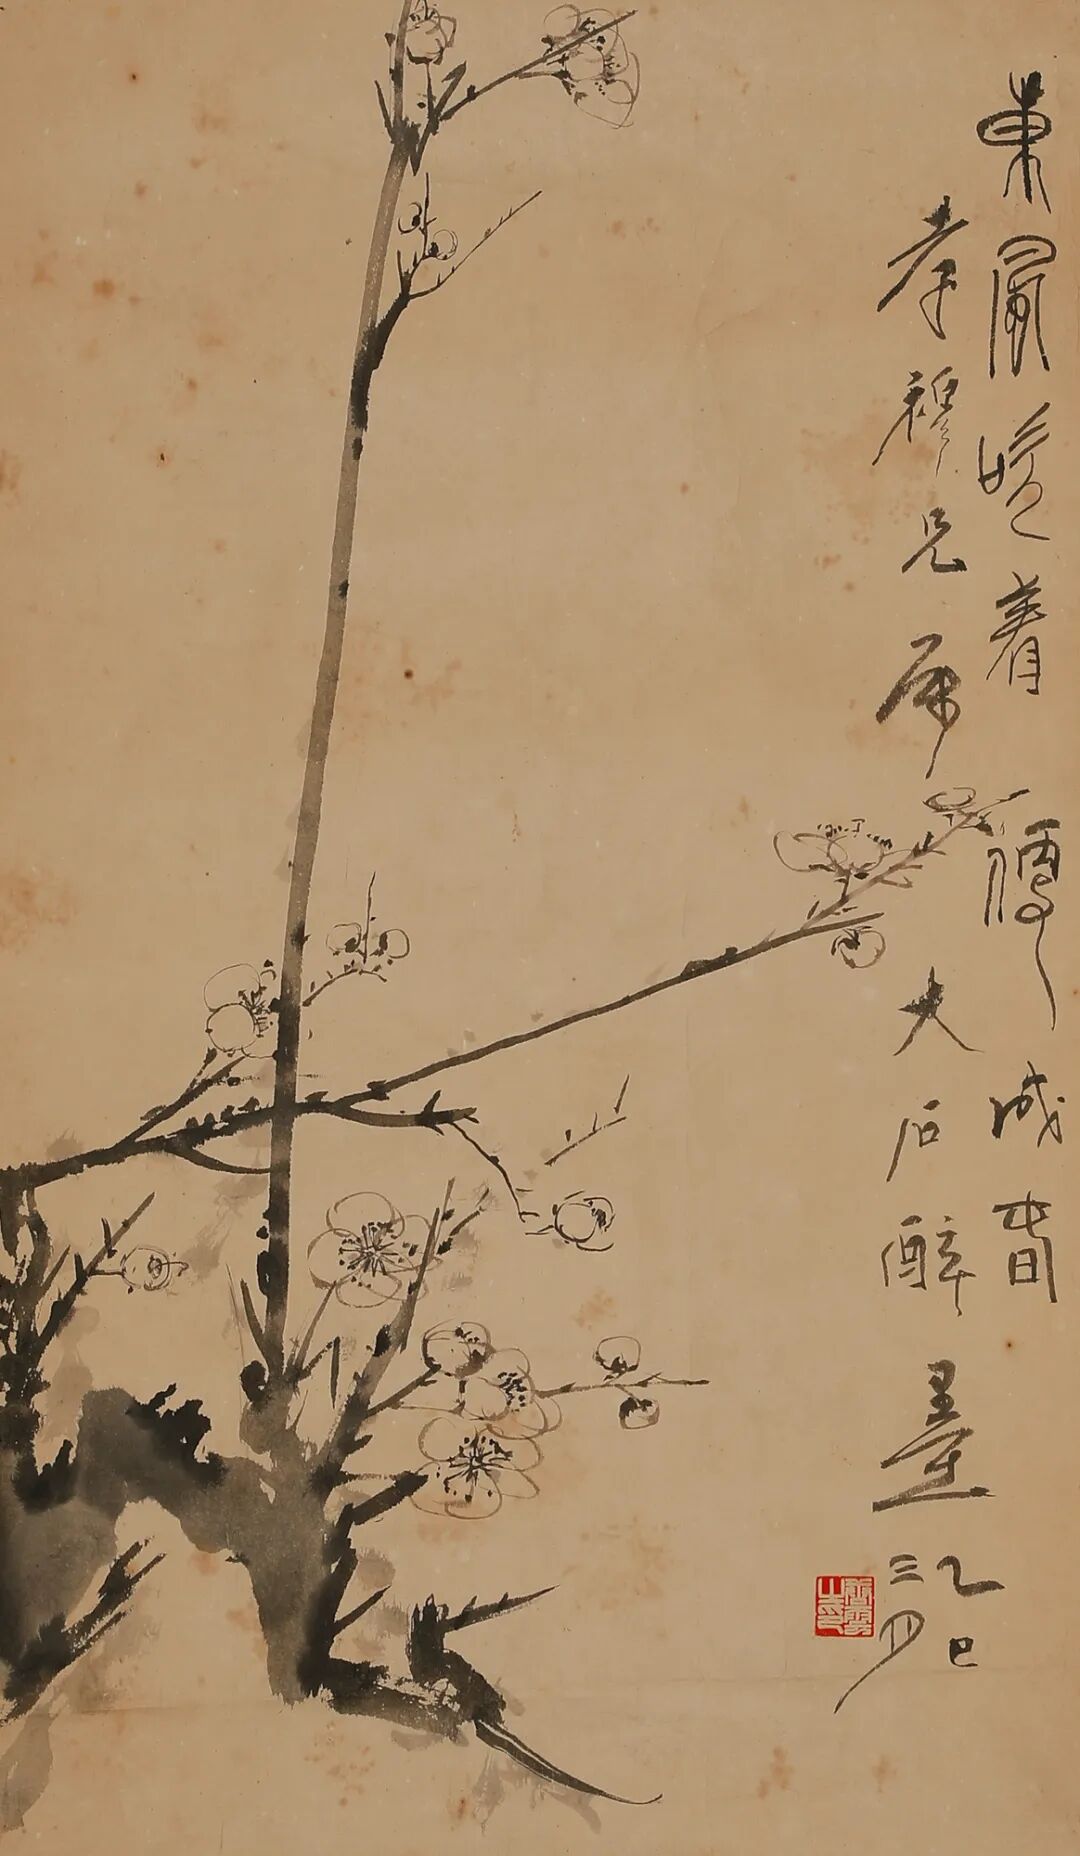 東風吹着便成春
孝穆兄屬大石醉墨
乙巳
三月